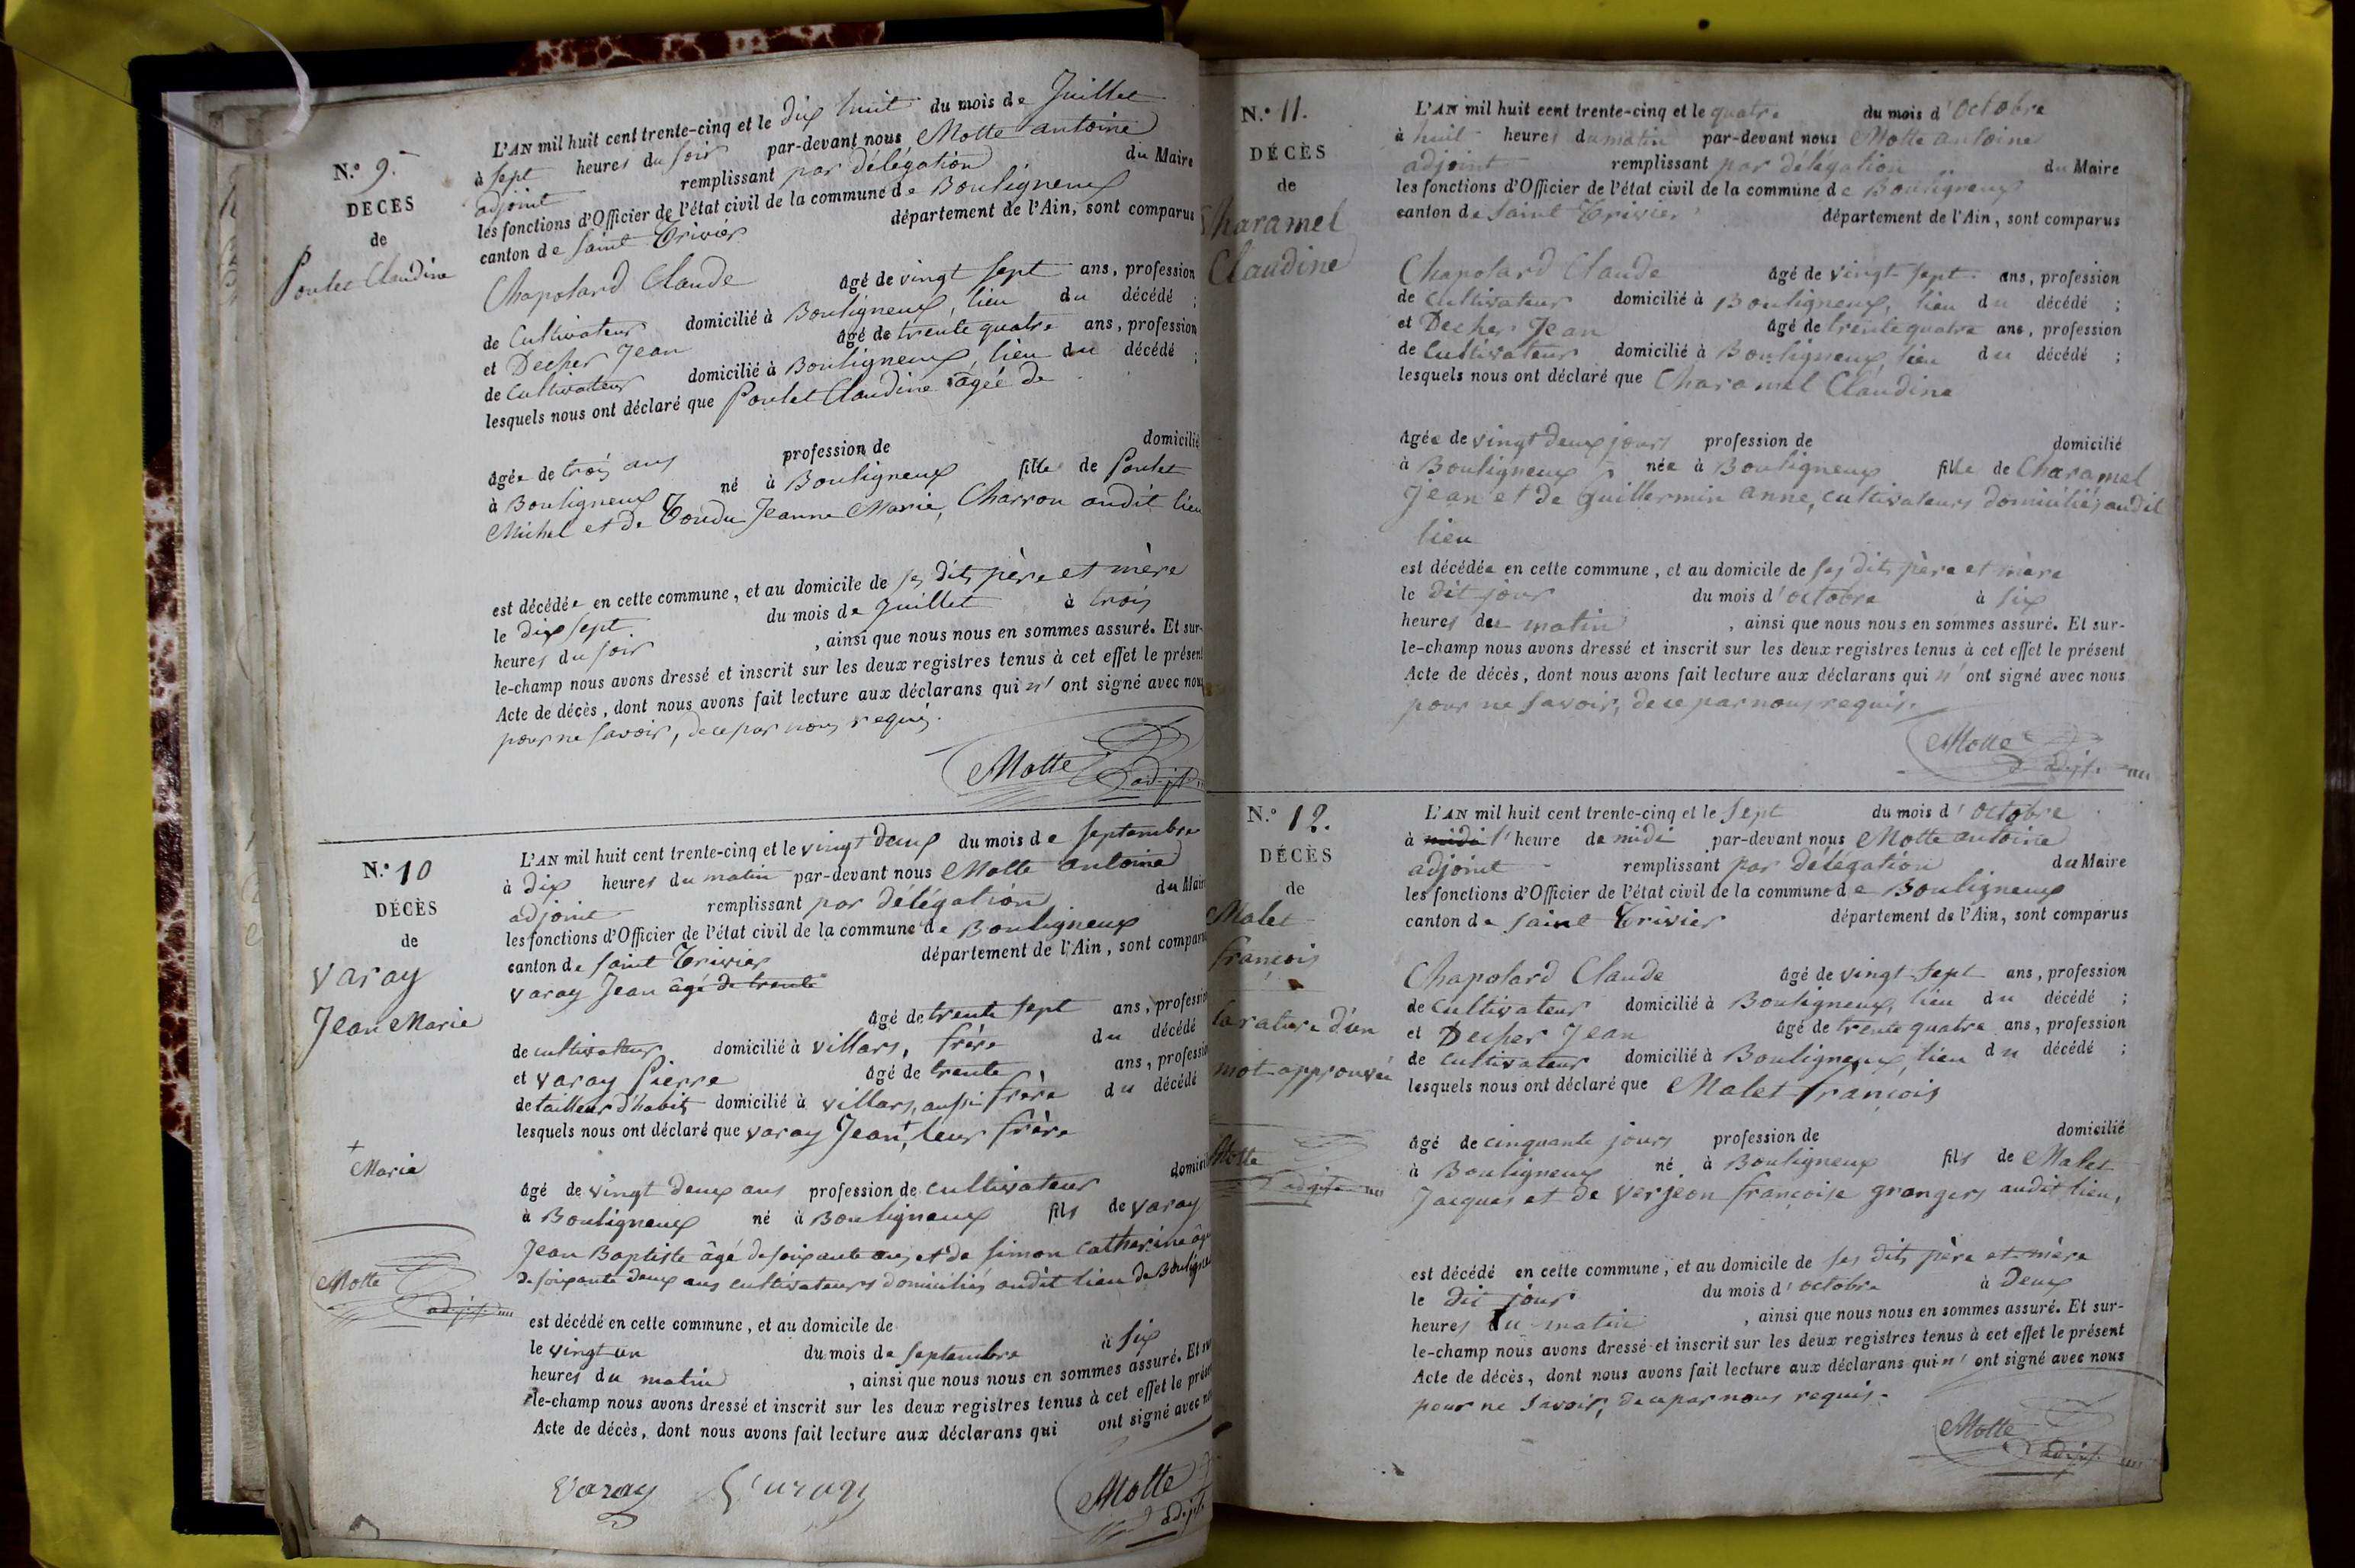 N.º 9.
DÉCÈS
de
Poulet Claudine
L'AN mil huit cent trente-cinq et le dix huit du mois de Juillet
à sept heures du soir par-devant nous Motte antoine
adjoint remplissant par délégation du Maire
les fonctions d'Officier de l'état civil de la commune de Bouligneux
canton de Saint Trivier département de l'Ain, sont comparus
Chapolard Claude âgé de vingt sept ans, profession
de Cultivateur domicilié à Bouligneux, lieu du décédé ;
et Decher Jean âgé de trente quatre ans, profession
de Cultivateur domicilié à Bouligneux lieu du décédé ;
lesquels nous ont déclaré que Poulet Claudine âgée de
âgée de trois ans profession de domicilié
à Bouligneux né à Bouligneux fille de Poulet
Michel et de Toudu Jeanne Marie, Charron audit lieu
est décédée en cette commune, et au domicile de ses dits père et mère
le dix sept du mois de Juillet à trois
heures du soir , ainsi que nous nous en sommes assuré. Et sur-
le-champ nous avons dressé et inscrit sur les deux registres tenus à cet effet le présent
Acte de décès, dont nous avons fait lecture aux déclarans qui n' ont signé avec nous
pour ne savoir, de ce par nous requis.
Motte adjt
N.º 10
DÉCÈS
de
Varay
Jean Marie
+
Marie
Motte
adjt
L'AN mil huit cent trente-cinq et le vingt deux du mois de Septembre
à dix heures du matin par-devant nous Motte antoine
adjoint remplissant par délégation du Maire
les fonctions d'Officier de l'état civil de la commune de Bouligneux
canton de Saint Trivier département de l'Ain, sont comparus
varay Jean âgé de trente
âgé de trente sept ans, profession
de cultivateur domicilié à villars, frère du décédé
et varay Pierre âgé de trente ans, profession
de tailleur d'habits domicilié à villars, aussi frère du décédé
lesquels nous ont déclaré que varay Jean + leur frère
âgé de vingt deux ans profession de cultivateur domicilié
à Bouligneux né à Bouligneux fils de varay
Jean Baptiste âgé de soixante ans et de Simon Catherine âgée
de soixante deux ans cultivateurs domiciliés audit lieu de Bouligneux
est décédé en cette commune, et au domicile de
le vingt un du mois de Septembre à six
heures du matin , ainsi que nous nous en sommes assuré. Et sur-
le-champ nous avons dressé et inscrit sur les deux registres tenus à cet effet le présent
Acte de décès, dont nous avons fait lecture aux déclarans qui ont signé avec nous
Varay Varay Motte
adjt
N.º 11.
DÉCÈS
de
Charamel
Claudine
L'AN mil huit cent trente-cinq et le quatre du mois d'Octobre
à huit heures du matin par-devant nous Motte antoine
adjoint remplissant par délégation du Maire
les fonctions d'Officier de l'état civil de la commune de Bouligneux
canton de Saint Trivier département de l'Ain, sont comparus
Chapolard Claude âgé de vingt sept ans, profession
de Cultivateur domicilié à Bouligneux, lieu du décédé ;
et Decher Jean âgé de trente quatre ans, profession
de Cultivateur domicilié à Bouligneux lieu du décédé ;
lesquels nous ont déclaré que Charamel Claudine
âgée de vingt deux jours profession de domicilié
à Bouligneux, née à Bouligneux fille de Charamel
Jean et de Guillermin Anne, cultivateurs domiciliés audit
lieu
est décédée en cette commune, et au domicile de ses dits père et mère
le dit jour du mois d'octobre à six
heures du matin , ainsi que nous nous en sommes assuré. Et sur-
le-champ nous avons dressé et inscrit sur les deux registres tenus à cet effet le présent
Acte de décès, dont nous avons fait lecture aux déclarans qui n' ont signé avec nous
pour ne savoir, de ce par nous requis.
Motte
adjt.
N.º 12.
DÉCÈS
de
Malet
françois
la rature d'un
mot approuvée
Motte
adjt
L'AN mil huit cent trente-cinq et le Sept du mois d'octobre
à midi l'heure de midi par-devant nous Motte antoine
adjoint remplissant par délégation du Maire
les fonctions d'Officier de l'état civil de la commune de Bouligneux
canton de Saint Trivier département de l'Ain, sont comparus
Chapolard Claude âgé de vingt Sept ans, profession
de Cultivateur domicilié à Bouligneux, lieu du décédé ;
et Decher Jean âgé de trente quatre ans, profession
de Cultivateur domicilié à Bouligneux, lieu du décédé ;
lesquels nous ont déclaré que Malet françois
âgé de cinquante jours profession de domicilié
à Bouligneux né à Bouligneux fils de Malet
Jacques et de Verjeon françoise grangers audit lieu,
est décédé en cette commune, et au domicile de ses dits père et mère
le dit jour du mois d'octobre à Deux
heures du matin , ainsi que nous nous en sommes assuré. Et sur-
le-champ nous avons dressé et inscrit sur les deux registres tenus à cet effet le présent
Acte de décès, dont nous avons fait lecture aux déclarans qui n' ont signé avec nous
pour ne savoir, de ce par nous requis.
Motte
adjt.